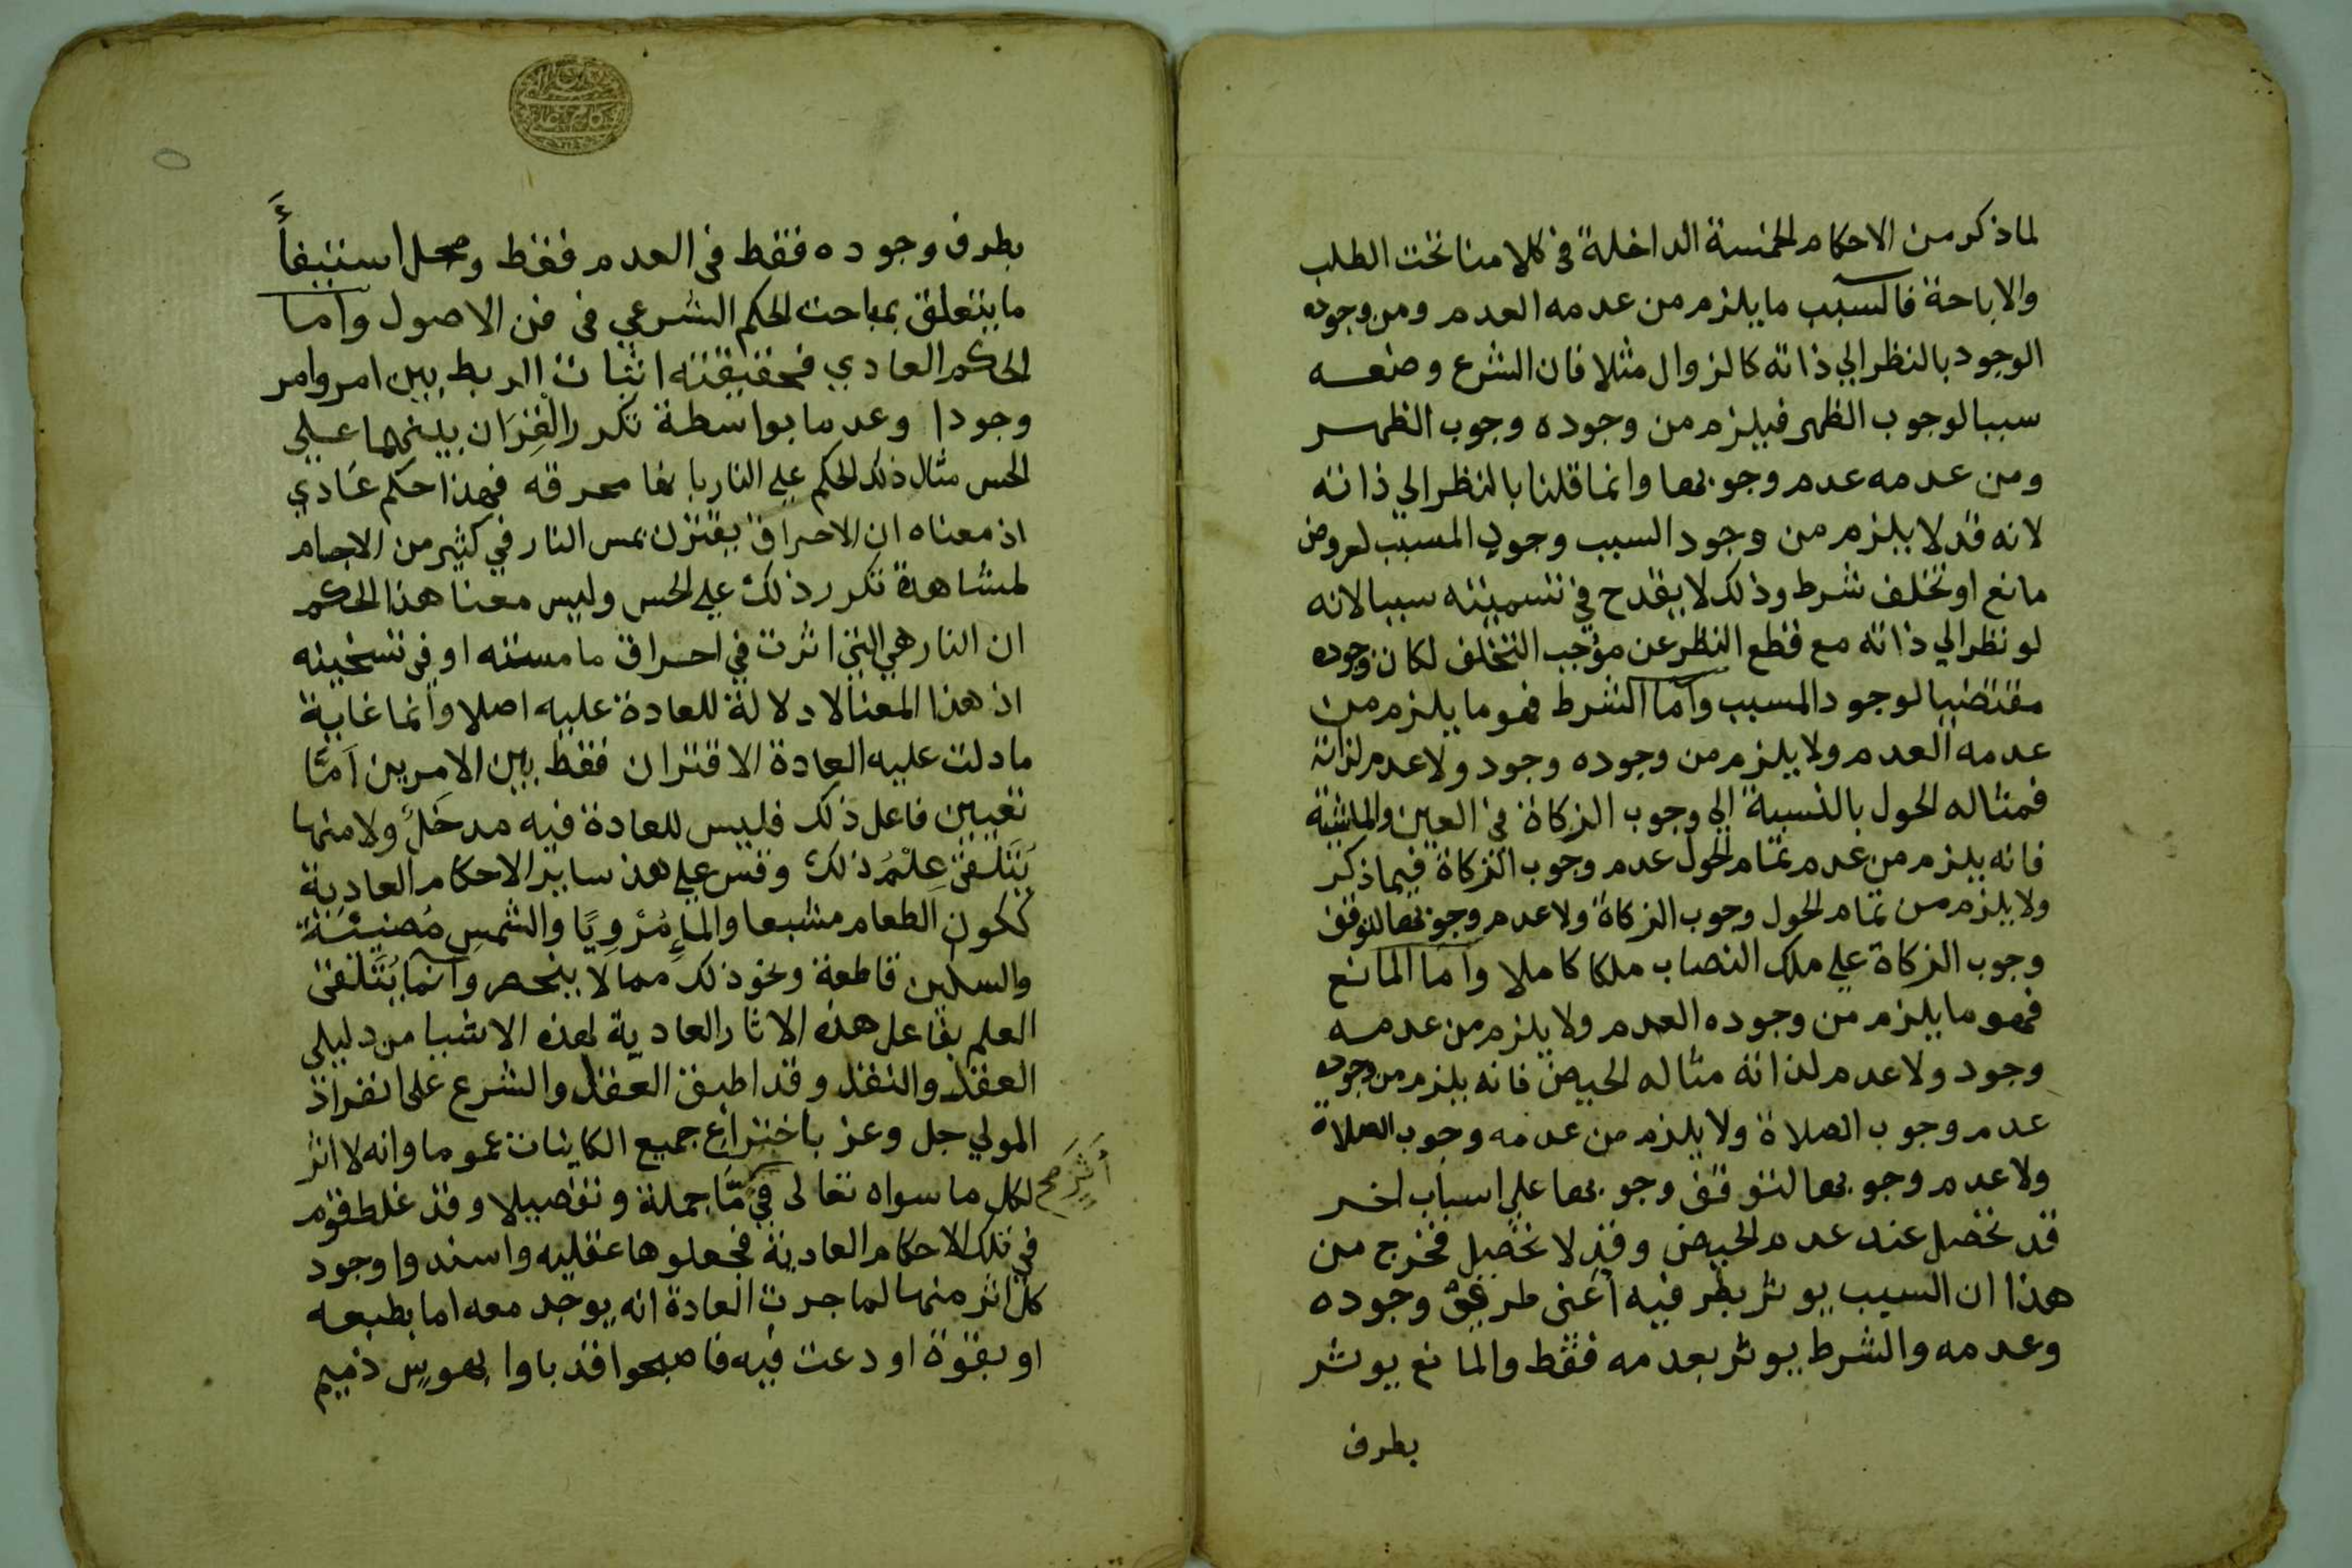 لما ذكر من الاحكام الخمسة الداخلة في كلامنا تحت الطلب
والاباحة فالسبب ما يلزم من عدمه العدم ومن وجوده
الوجود بالنظر الي ذاته كالزوال مثلا فان الشرع وضعه
سببا لوجوب الظهر فيلزم من وجوده وجوب الظهر
ومن عدمه عدم وجوبها وانما قلنا بالنظر الي ذاته
لانه قد لا يلزم من وجود السبب وجود المسبب لعروض
مانع او تخلف شرط وذلك لا يقدح في تسميته سببا لانه
لو نظر الي ذاته مع قطع النظر عن موجب التخلف لكان وجوده
مقتضيا لوجود المسبب وأما الشرط فهو ما يلزم من
عدمه العدم ولا يلزم من وجوده وجود ولا عدم لذاته
فمثاله الحول بالنسبة الي وجوب الزكاة في العين والماشية
فانه يلزم من عدم تمام الحول عدم وجوب الزكاة فيما ذكر
ولا يلزم من تمام الحول وجوب الزكاة ولا عدم وجوبها لتوقف
وجوب الزكاة علي ملك النصاب ملكا كاملا وأما المانع
فهو ما يلزم من وجوده العدم ولا يلزم من عدمه
وجود ولا عدم لذاته مثاله الحيض فانه يلزم من وجوده
عدم وجوب الصلاة ولا يلزم من عدمه وجوب الصلاة
ولا عدم وجوبها لتوقف وجوبها علي اسباب اخر
قد تحصل عند عدم الحيض وقد لا تحصل فخرج من
هذا ان السبب يوثر بطرفيه أعني طرفي وجوده
وعدمه والشرط يوثر بعدمه فقط والمانع يوثر
بطرف
بطرف وجوده فقط في العدم فقط ومحل استيفأَ
ما يتعلق بمباحث الحكم الشرعي في فن الاصول وأما
الحكم العادي فحقيقته اثبات الربط بين امر وامر
وجودا وعدما بواسطة تكرر القِرَان بينهما علي
الحس مثال ذلك الحكم علي النار بانها محرقه فهذا حكم عَادي
اذ معناه ان الاحراق يقترن بمس النار في كثير من الاجسام
لمشاهدة تكرر ذلك علي الحس وليس معنا هذا الحكم
ان النار هي التي اثرت في احراق ما مسته او في تسخينه
اذ هذا المعنا لا دلالة للعادة عليه اصلا وانما غاية
ما دلت عليه العادة الاقتران فقط بين الامرين اَمّا
تعيين فاعل ذلك فليس للعادة فيه مدخَلٌ ولا منها
يُتَلَقى عِلْمُ ذلك وقس علي هذ ساير الاحكام العادية
ككون الطعام مشبعا والماءِ مُرْوِيًا والشمسِ مُضيئَة
والسكين قاطعة ونحو ذلك مما لا ينحصر وانما يُتَلقى
العلم بفاعل هذه الاثار العادية لهذه الاشيا من دليلي
العقل والنقل وقد اطبق العقل والشرع على انفراد
المولي جل وعز باختراع جميع الكاينات عموما وانه لا اثر
لكل ما سواه تعالى في مّا جملة وتفصيلا وقد غلط قوم
أَثَرٍ صح
في تلك الاحكام العادية فجعلوها عقليه واسندوا وجود
كل اثر منها لما جرت العادة انه يوجد معه اما بطبعه
او بقوة اودعت فيه فاصبحوا قد باوا بهوسٍ ذميم